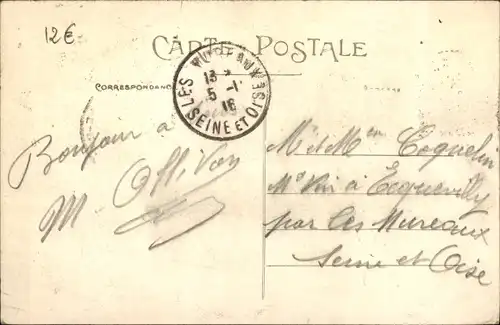 12€
CARTE POSTALE
CORRESPONDANCE
LES MUREAUX
13 *
5 -1
16
SEINE ET OISE
Bonjour à
M. Ollivon
Mr et Mme Coquelin
Md Vin à Ecquevilly
par Les Mureaux
Seine et Oise